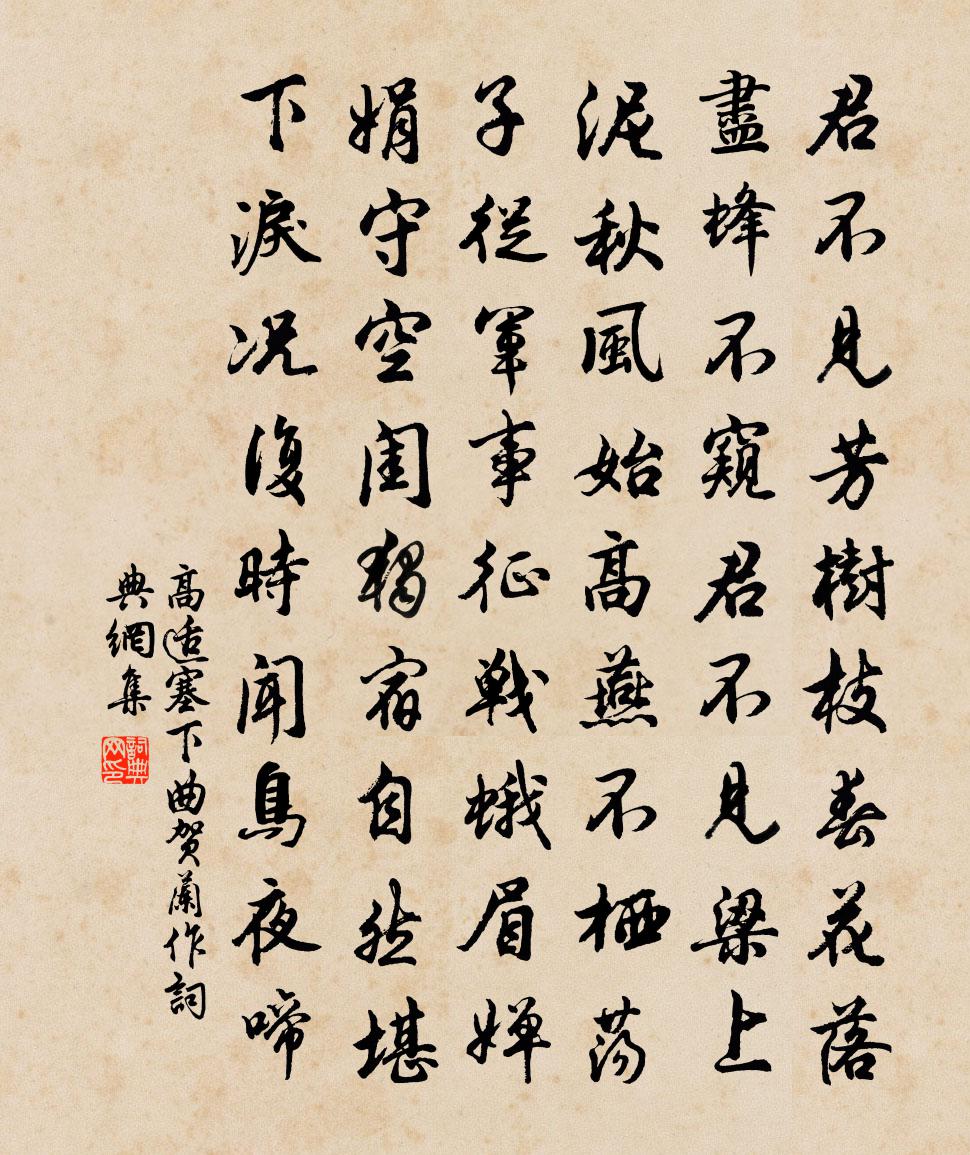 君不見芳樹枝春花落
盡蜂不窺君不見梁上
泥秋風始高燕不栖蕩
子從軍事征戰蛾眉嬋
娟守空閨獨宿自然堪
下淚況復時聞鳥夜啼
高适塞下曲贺蘭作詞
典網集
詞典
网印